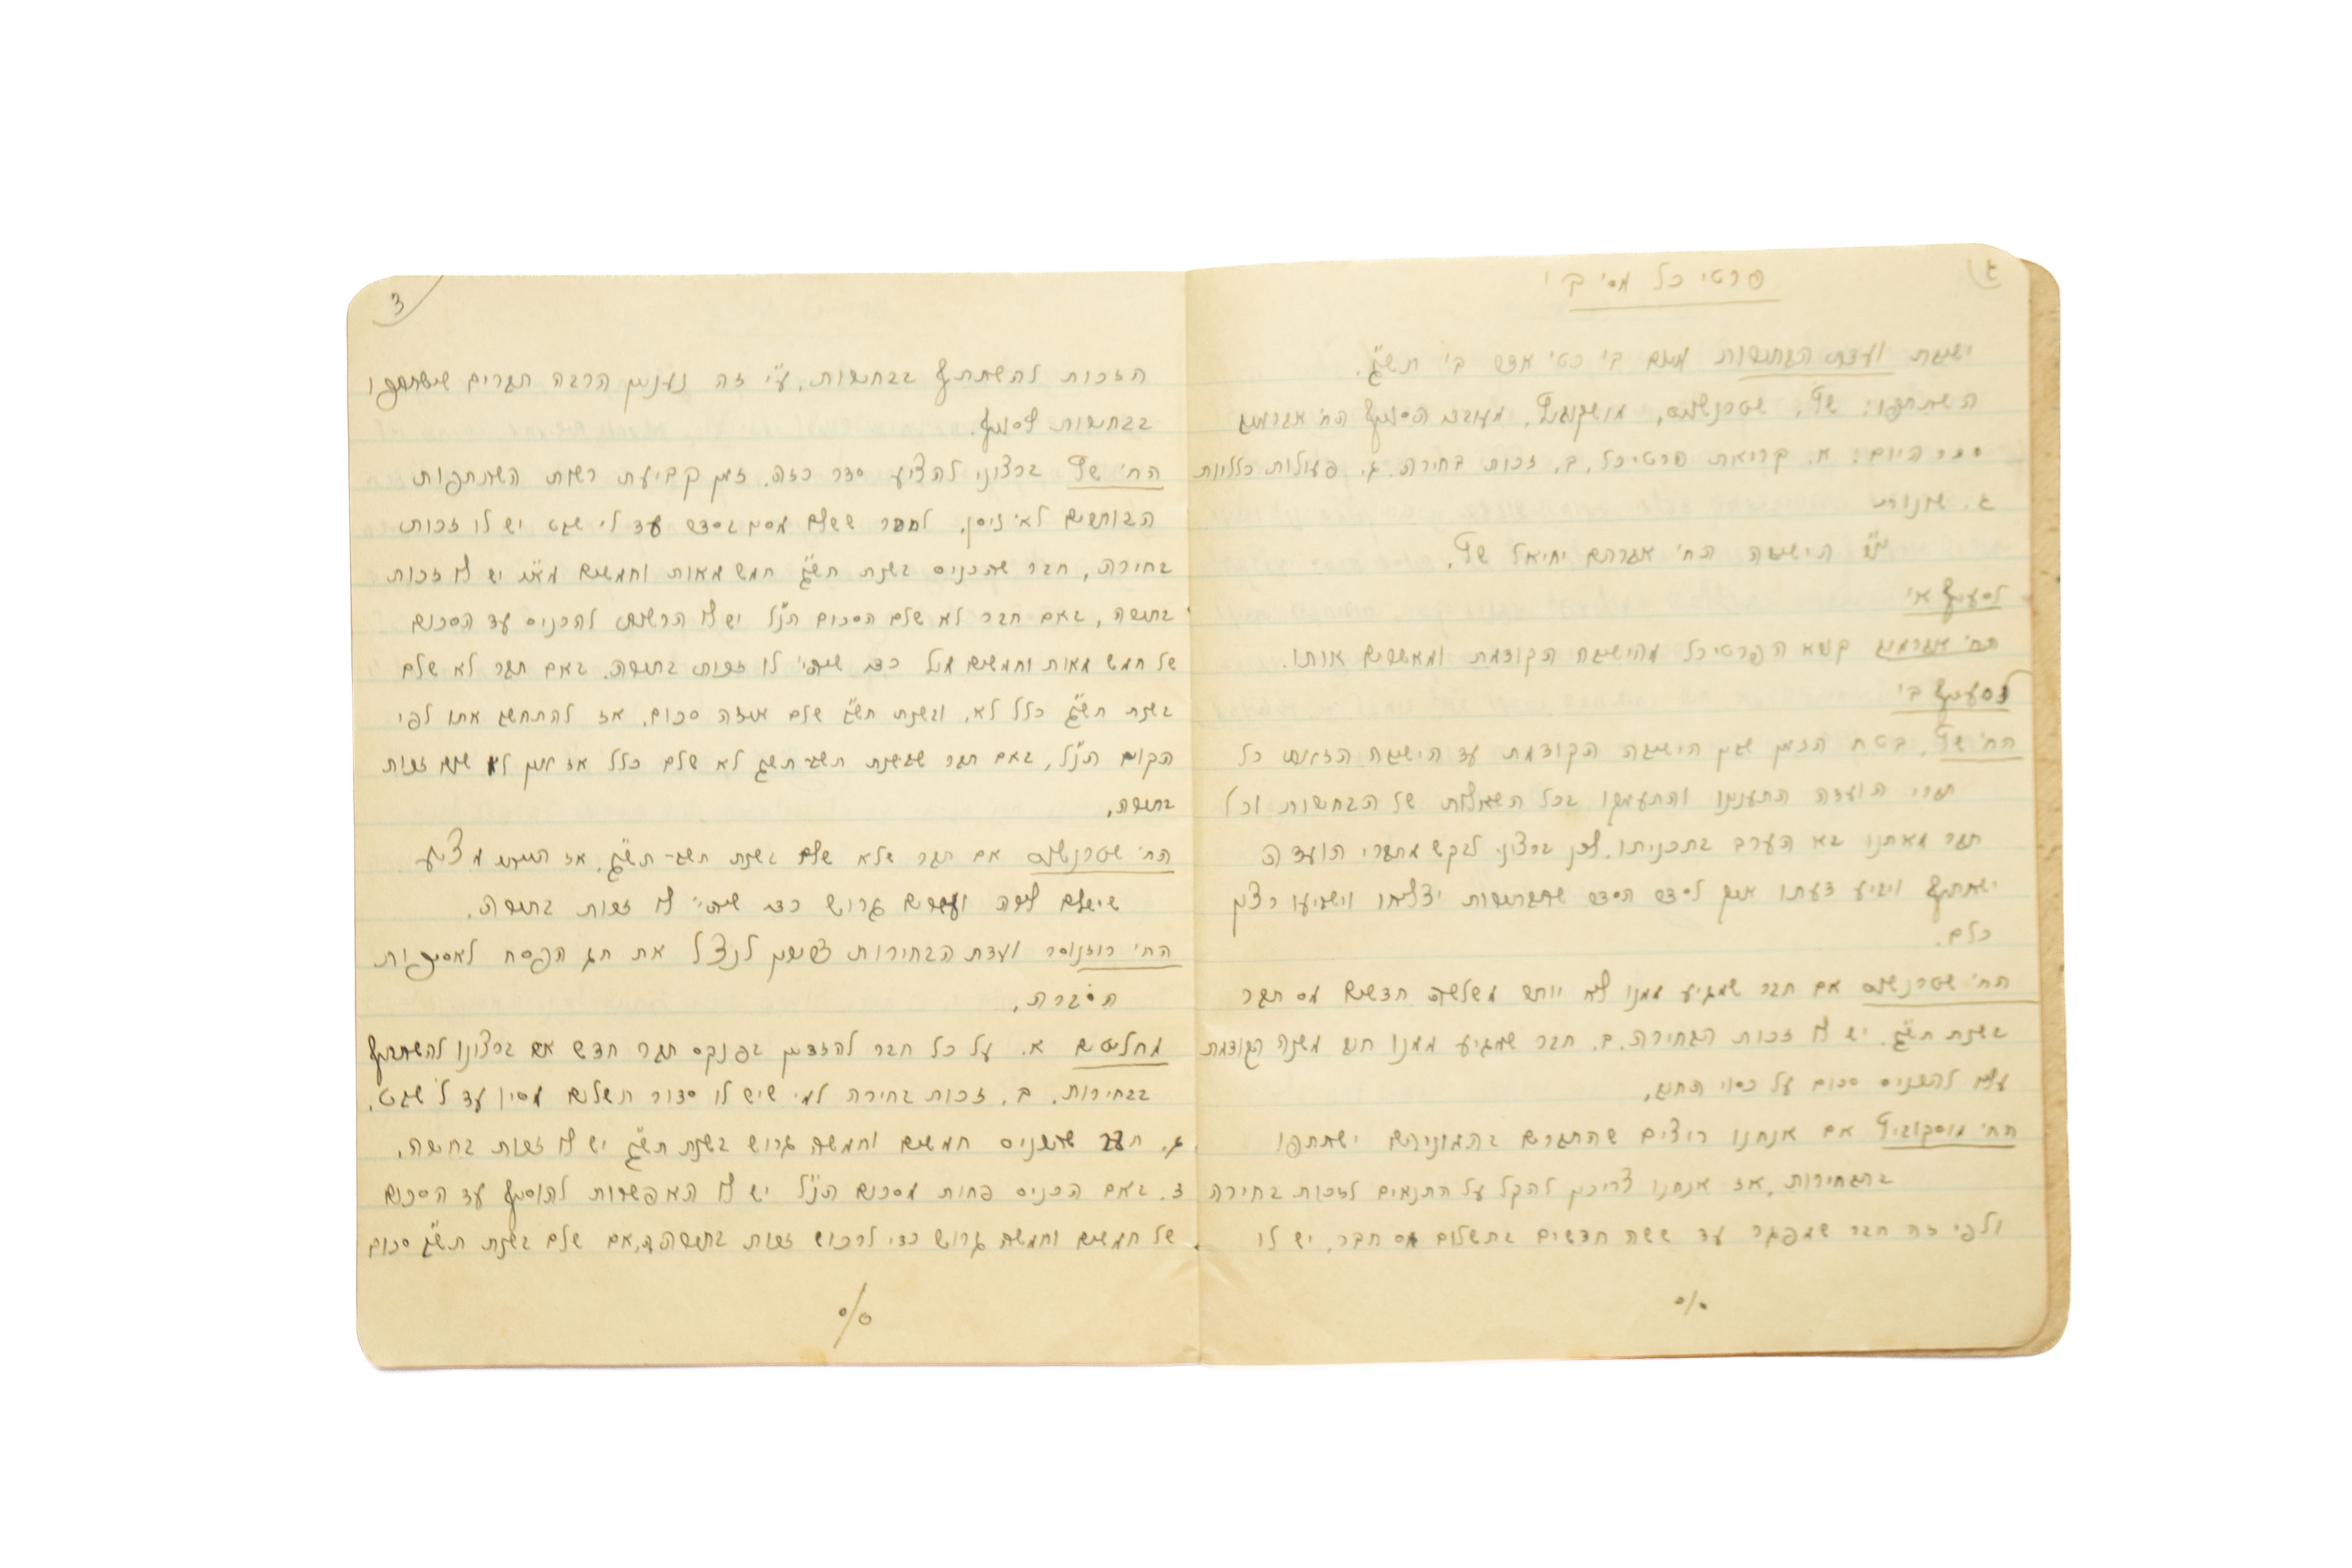 פרטי כל מס' ב'
ישיבת ועדת הבחירות מיום ב' כט' אדר ב' תש"ג.
השתתפו: שץ, שטרנשוס, מושקוביץ, מעורבב הסניף הח' אברמוב
סדר היום: א. קריאת פרטיכל. ב. זכות בחירה. ג. פעולות כלליות
ג. שונות
יו"ר הישיבה הח' אברהם יחיאל שץ.
לסעיף א'
הח' אברמוב קורא הפרטיכל מהישיבה הקודמת ומאשרים אותו.
לסעיף ב'
הח' שץ. בטח הזמן שבין הישיבה הקודמת עד הישיבה הזאת כל
חברי הועדה התענינו והתעמקו בכל השאלות של הבחירות וכל
חבר מאתנו בא הערב בתכניתו. לכן ברצוני לבקש מחברי הועדה
ישתתף ויביע דעתו איך לסדר הסדר שהבחירות יצליחו וישביעו רצון
כלם.
הח' אם חבר שמגיע ממנו לא יותר משלשה חדשים מס חבר
בשנת תש"ג. יש לו זכות הבחירה. ב. חבר שמגיע ממנו חוב משנה הקודמת
עליו להכניס סכום על כסוי החוב.
הח' מוסקוביץ אם אנחנו רוצים שהחברים בהמוניהם ישתתפו
בהבחירות. אז אנחנו צריכין להקל על התנאים לזכות בחירה
ולפי זה חבר שמפגר עד ששה חדשים בתשלום מס חבר. יש לו
%
3
הזכות להשתתף בבחירות. ע"י זה נענין הרבה חברים שישתתפו
בבחירות לסניף.
הח' שץ ברצוני להציע סדר כזה. זמן קביעת רשות השתתפות
הבוחרים לא' ניסן. לחבר ששלם מסים בסדר עד ל' שבט יש לו זכות
בחירה, חבר שהכניס בשנת תש"ג חמש מאות וחמשים מא"י יש לו זכות
בחירה, באם חבר לא שלם הסכום הנ"ל יש לו הרשות להכניס עד הסכום
של חמש מאות וחמשים מיל כדי שיהי' לו זכות בחירה. באם חבר לא שלם
בשנת תש"ג כלל לא. ובשנת תש"ג שלם איזה סכום. אז להתחשב אתו לפי
הקודם הנ"ל, באם חבר שבשנת תשב-תשג לא שלם כלל אז אין לו שום זכות
בחירה.
הח' אם חבר שלא שלם בשנת תשב-תש"ג. אז הייתי מציע
שישלם לירה ועשרים גרוש כדי שיהי' לו זכות בחירה.
הח' רוזנוסר ועדת הבחירות צריכין לנצל את חג הפסח לאסיפות
הסברה.
מחליטים א. על כל חבר להזדיין בפנקס חבר חדש אם ברצונו להשתתף
בבחירות. ב. זכות בחירה למי שיש לו סדור תשלום מסין עד ל' שבט.
ג. חבר שהכניס חמשים וחמשה גרוש בשנת תש"ג יש לו זכות בחירה.
ד. באם הכניס פחות מסכום הנ"ל יש לו האפשרות להוסיף עד הסכום
של חמשים וחמשה גרוש כדי לרכוש זכות בחירה ה. אם שלם בשנת תש"ג סכום
%